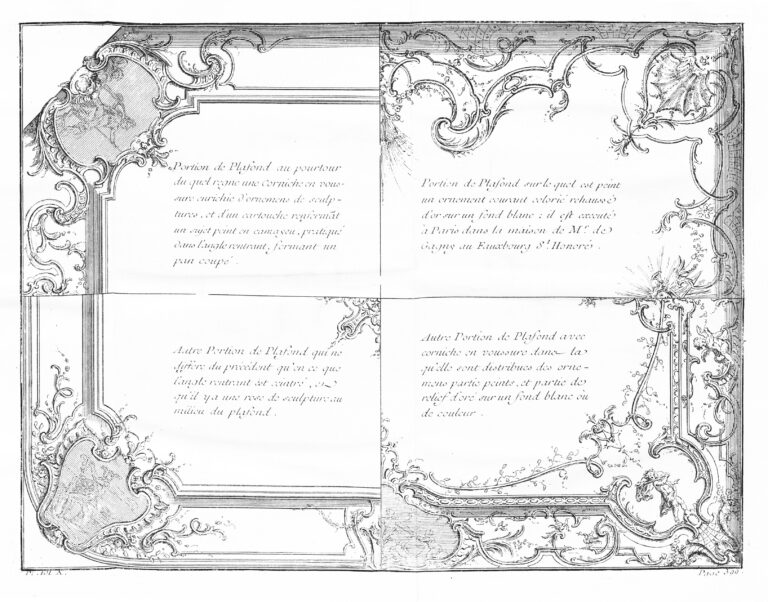 Portion de Plafond au pourtour
du quel regne une Corniche en vous-
sure enrichie d'ornemens de sculp-
tures, et d'un cartouche renfermât
un sujet peint en camayeu, pratiqué
dans l'angle rentrant, formant un
pan coupé.
Portion de Plafond sur le quel est peint
un ornement courant colorie rehaussé
d'or sur un fond blanc; il est executé
à Paris dans la maison de Mr. de
Gagny au Fauxbourg St. Honoré.
Autre Portion de Plafond qui ne
differe du precedent qu'en ce que
l'angle rentrant est ceintré, et
qu'il y a une rose de sculpture au
milieu du plafond.
Autre Portion de Plafond avec
corniche en voussure dans la
qu'elle sont distribués des orne-
mens partie peints, et partie de
relief d'oré sur un fond blanc où
de couleur.